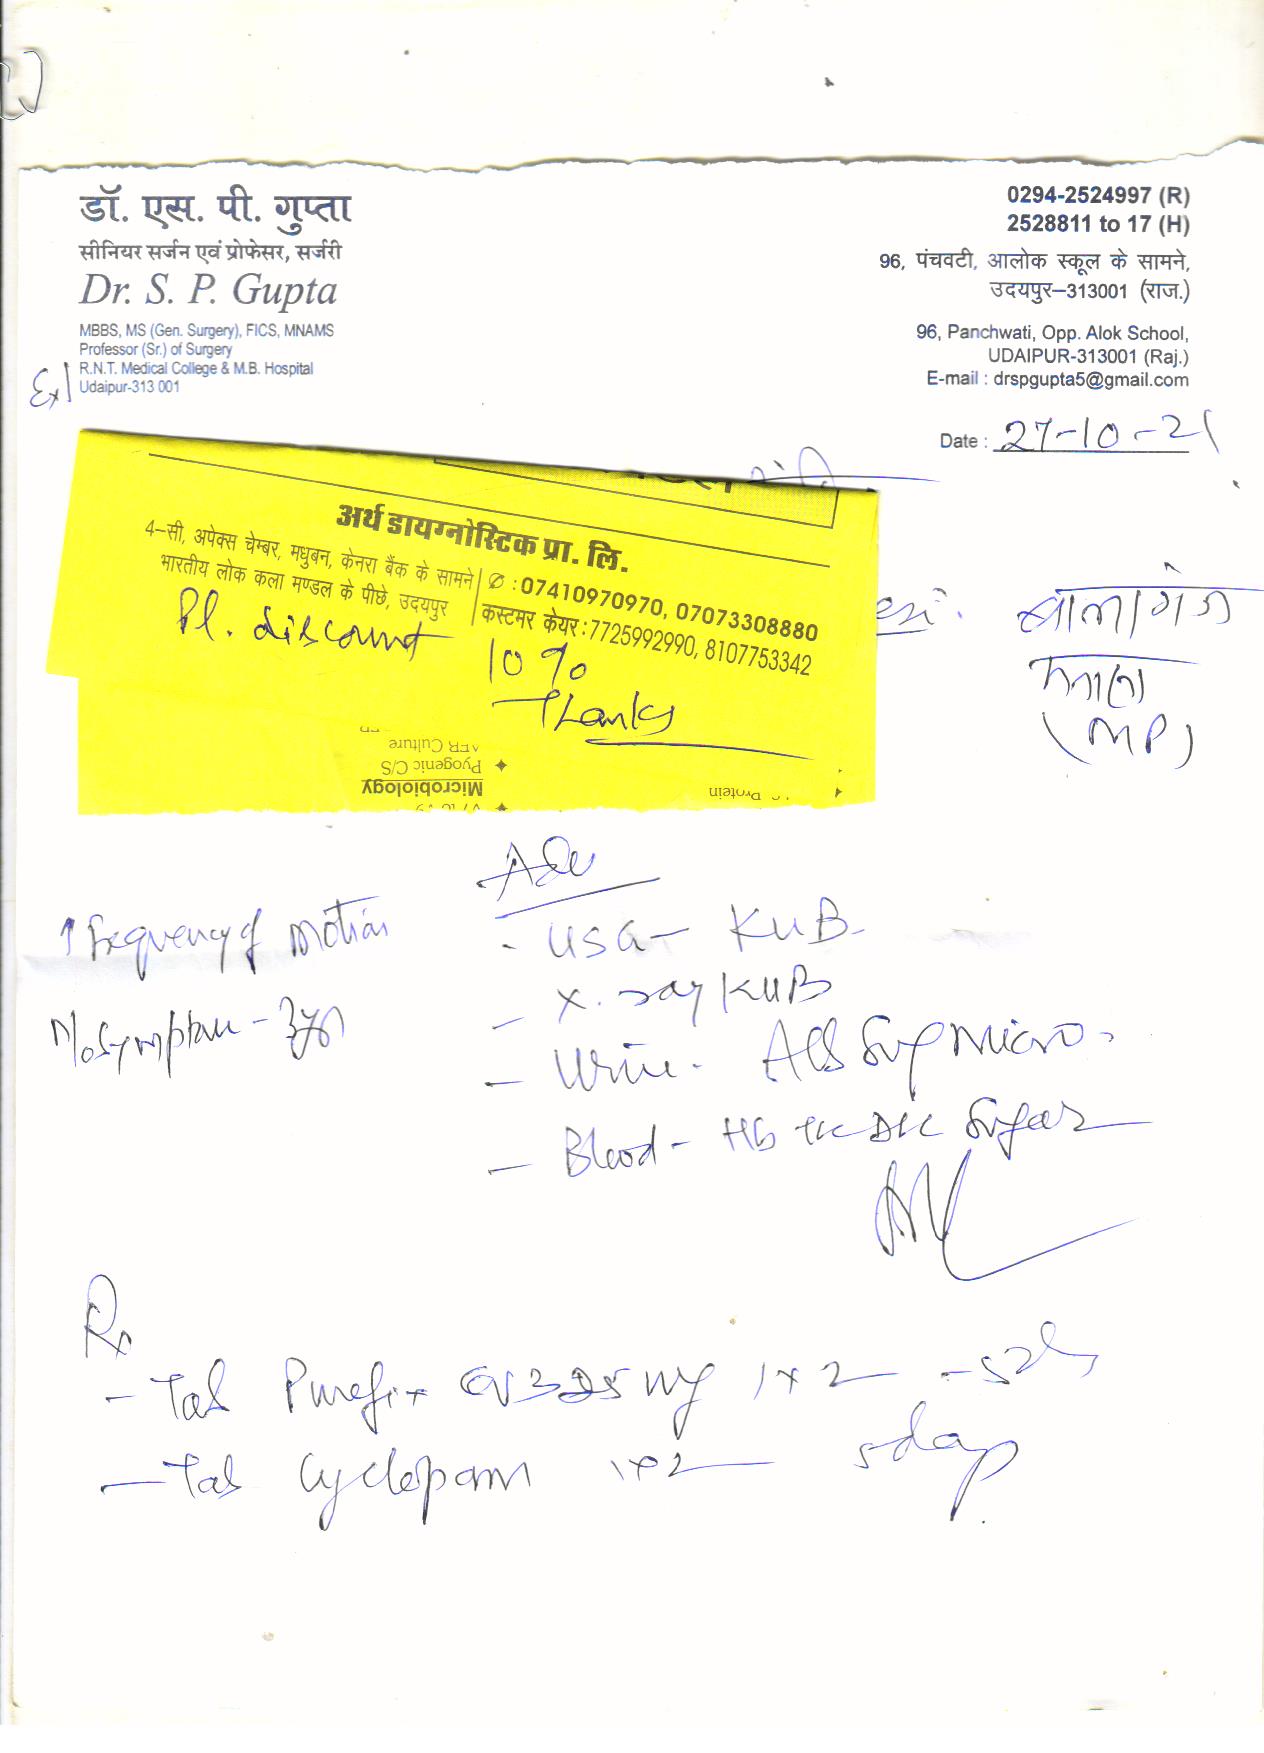 डॉ. एस. पी. गुप्ता
सीनियर सर्जन एवं प्रोफेसर, सर्जरी
Dr. S. P. Gupta
MBBS, MS (Gen. Surgery), FICS, MNAMS
Professor (Sr.) of Surgery
R.N.T. Medical College & M.B. Hospital
Udaipur-313 001
0294-2524997 (R)
2528811 to 17 (H)
96, पंचवटी, आलोक स्कूल के सामने,
उदयपुर–313001 (राज.)
96, Panchwati, Opp. Alok School,
UDAIPUR-313001 (Raj.)
E-mail : drspgupta5@gmail.com
Date : 27-10-21
अर्थ डायग्नोस्टिक प्रा. लि.
4–सी, अपेक्स चेम्बर, मधुबन, केनरा बैंक के सामने
भारतीय लोक कला मण्डल के पीछे, उदयपुर
✆ : 07410970970, 07073308880
कस्टमर केयर : 7725992990, 8107753342
Pl. discount
10%
Thanks
AFB Culture
Pyogenic C/S
Microbiology
Protein
(MP)
Adv
↑ frequency of motion
- USG - KUB
- X. ray KUB
- Urine - Alb Sug Micro.
- Blood - Hb TLC DLC Sugar
Rx
- Tab Purefix CV 325 mg 1x2 -
- Tab Cyclopam 1x2 - 5 days